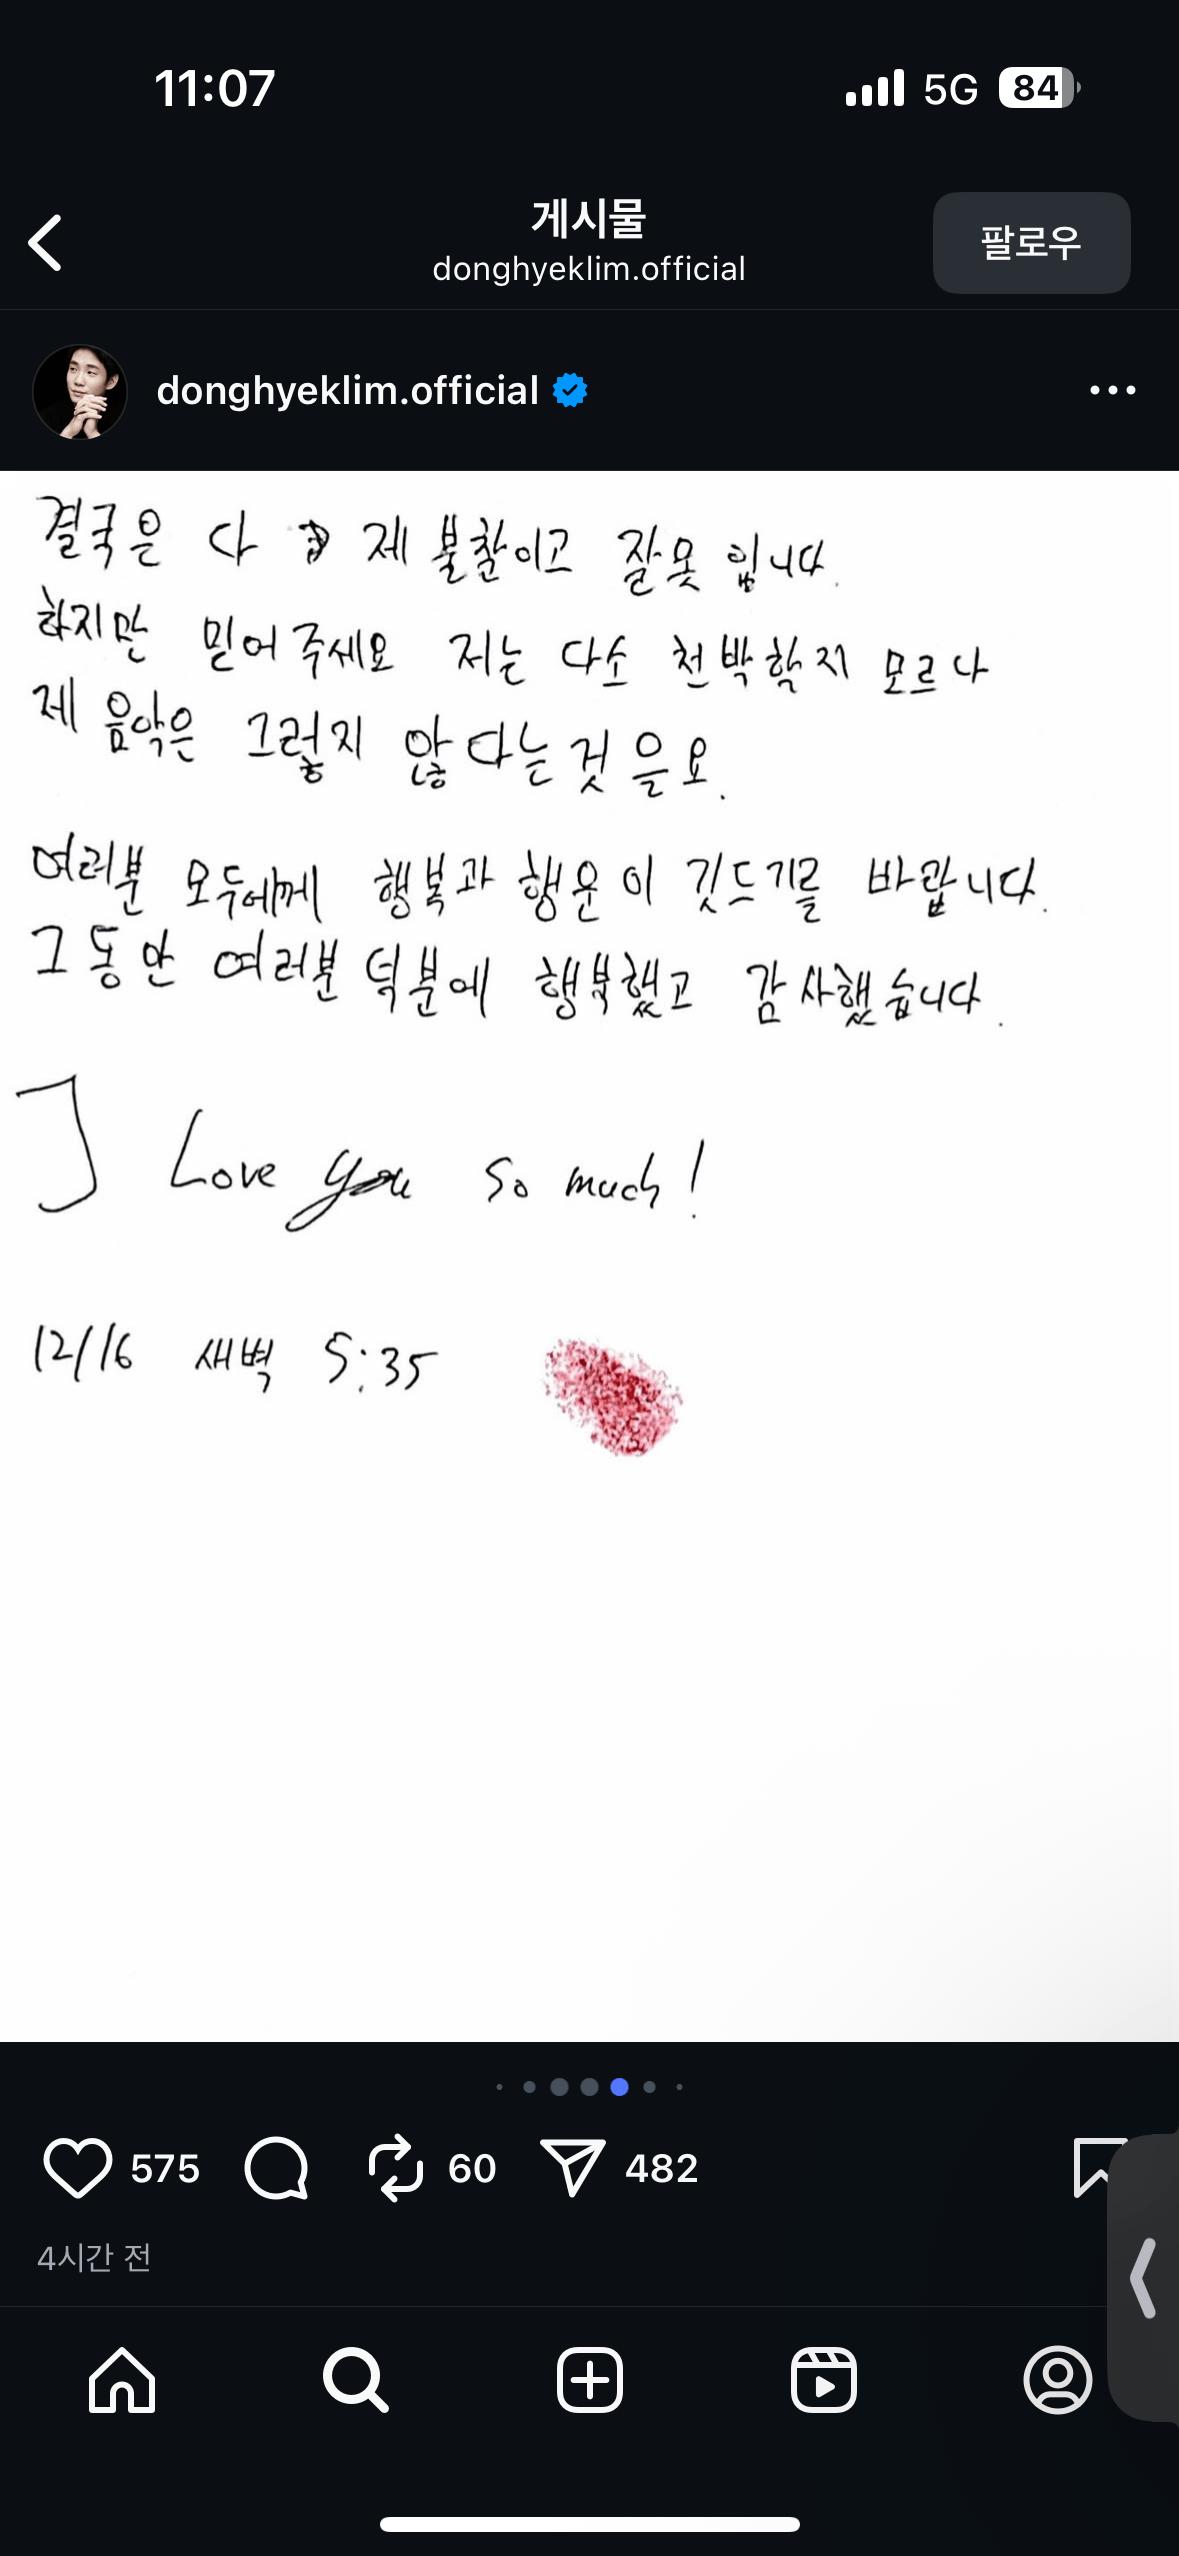 11:07
5G 84
게시물
donghyeklim.official
팔로우
donghyeklim.official
결국은 다 제 불찰이고 잘못 입니다.
하지만 믿어주세요 저는 다소 천박할지 모르나
제 음악은 그렇지 않다는것 을요.
여러분 모두에께 행복과 행운이 깃드기를 바랍니다.
그동안 여러분 덕분에 행복했고 감사했습니다.
I Love you so much!
12/16 새벽 5:35
575 60 482
4시간 전